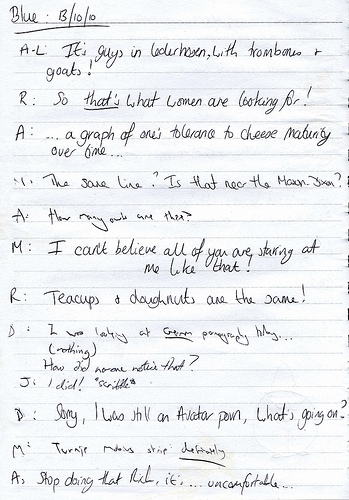 Blue : 13/10/10
A-L: It's guys in lederhosen, with trombones +
goats!
R: So that's what women are looking for!
A: ... a graph of one's tolerance to cheese maturity
over time...
M: The same line? Is that near the Mason-Dixon?
A: How many are there?
M: I can't believe all of you are staring at
me like that!
R: Teacups & doughnuts are the same!
D: I was looking at German pornography
(nothing)
How did no-one notice that?
J: I did! *scribble*
D: Sorry, I was still on Avatar porn, what's going on?
M: definitely
A: Stop doing that Rich, it's ... uncomfortable...